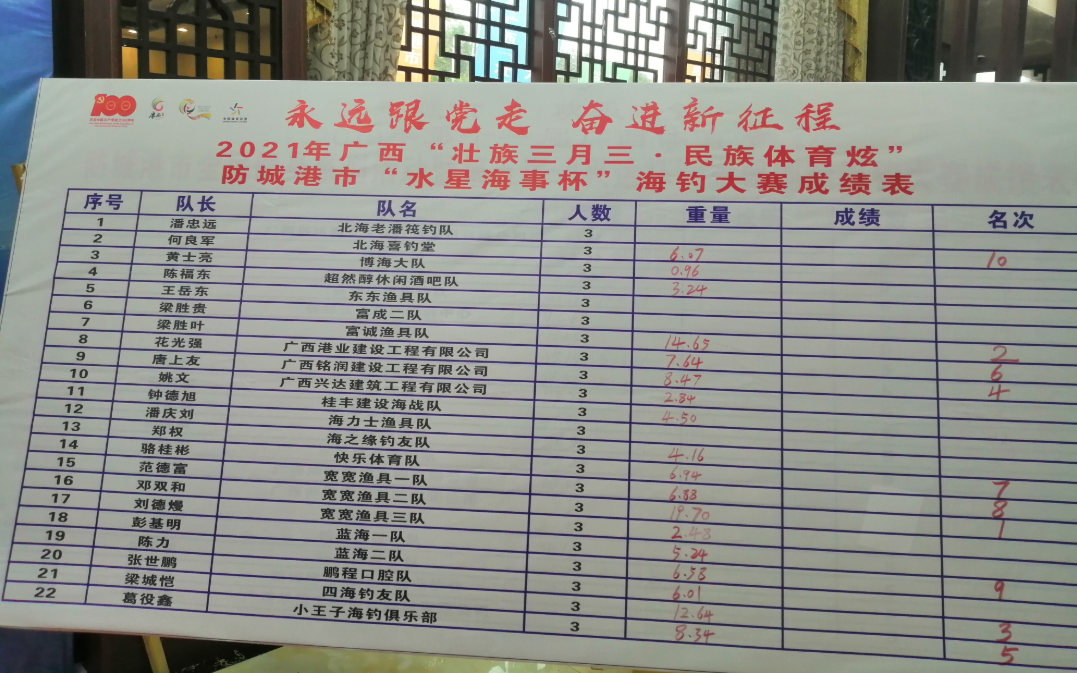 100
永远跟党走 奋进新征程
2021年广西“壮族三月三·民族体育炫”
防城港市“水星海事杯”海钓大赛成绩表
序号 队长 队名 人数 重量 成绩 名次
1 潘忠远 北海老潘筏钓队 3
2 何良军 北海喜钓堂 3 6.07 10
3 黄士亮 博海大队 3 0.96
4 陈福东 超然醇休闲酒吧队 3 3.24
5 王岳东 东东渔具队 3
6 梁胜贵 富成二队 3
7 梁胜叶 富诚渔具队 3 14.65 2
8 花光强 广西港业建设工程有限公司 3 7.64 6
9 唐上友 广西铭润建设工程有限公司 3 8.47 4
10 姚文 广西兴达建筑工程有限公司 3 2.84
11 钟德旭 桂丰建设海战队 3 4.50
12 潘庆刘 海力士渔具队 3
13 郑权 海之缘钓友队 3 4.16
14 骆桂彬 快乐体育队 3 6.94 7
15 范德富 宽宽渔具一队 3 6.88 8
16 邓双和 宽宽渔具二队 3 19.70 1
17 刘德熳 宽宽渔具三队 3 2.43
18 彭基明 蓝海一队 3 5.24
19 陈力 蓝海二队 3 6.58 9
20 张世鹏 鹏程口腔队 3 6.01
21 梁城恺 四海钓友队 3 12.64 3
22 葛役鑫 小王子海钓俱乐部 3 8.34 5